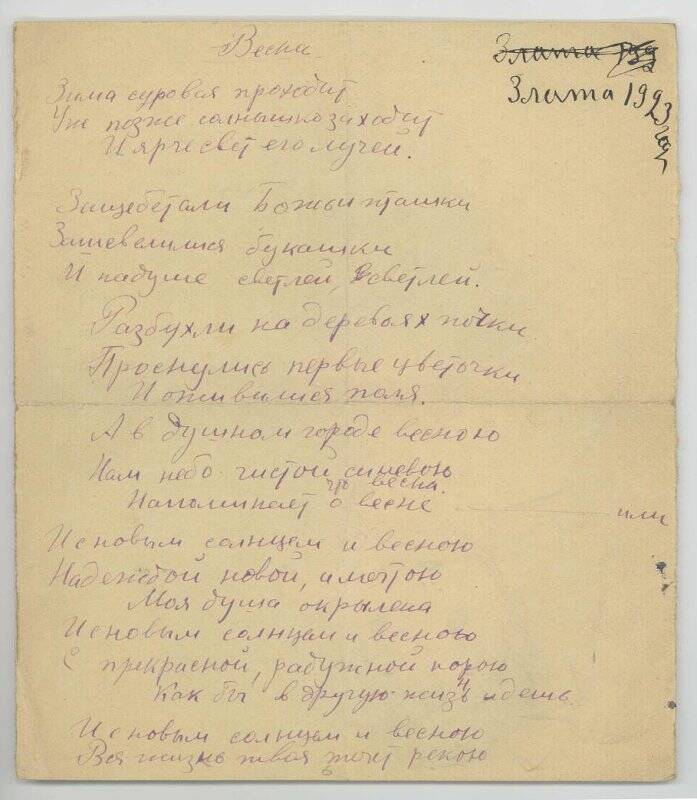 Весна
Злата 192
Злата 1923 год
Зима суровая проходит
Уж позже солнышко заходит
И ярче свет его лучей.
Защебетали Божьи пташки
Зашевелились букашки
И на душе светлей, светлей.
Разбухли на деревьях почки
Проснулись первые цветочки
И оживились поля.
А в душном городе весною
Нам небо чистой синевою
что весна.
Напоминает о весне — или
И с новым солнцем и весною
Надеждой новой, и мечтою
Моя душа окрылена
И с новым солнцем и весною
С прекрасной, радужной порою
Как бы в другую жизнь идешь
И с новым солнцем и весною
Вся жизнь твоя течет рекою